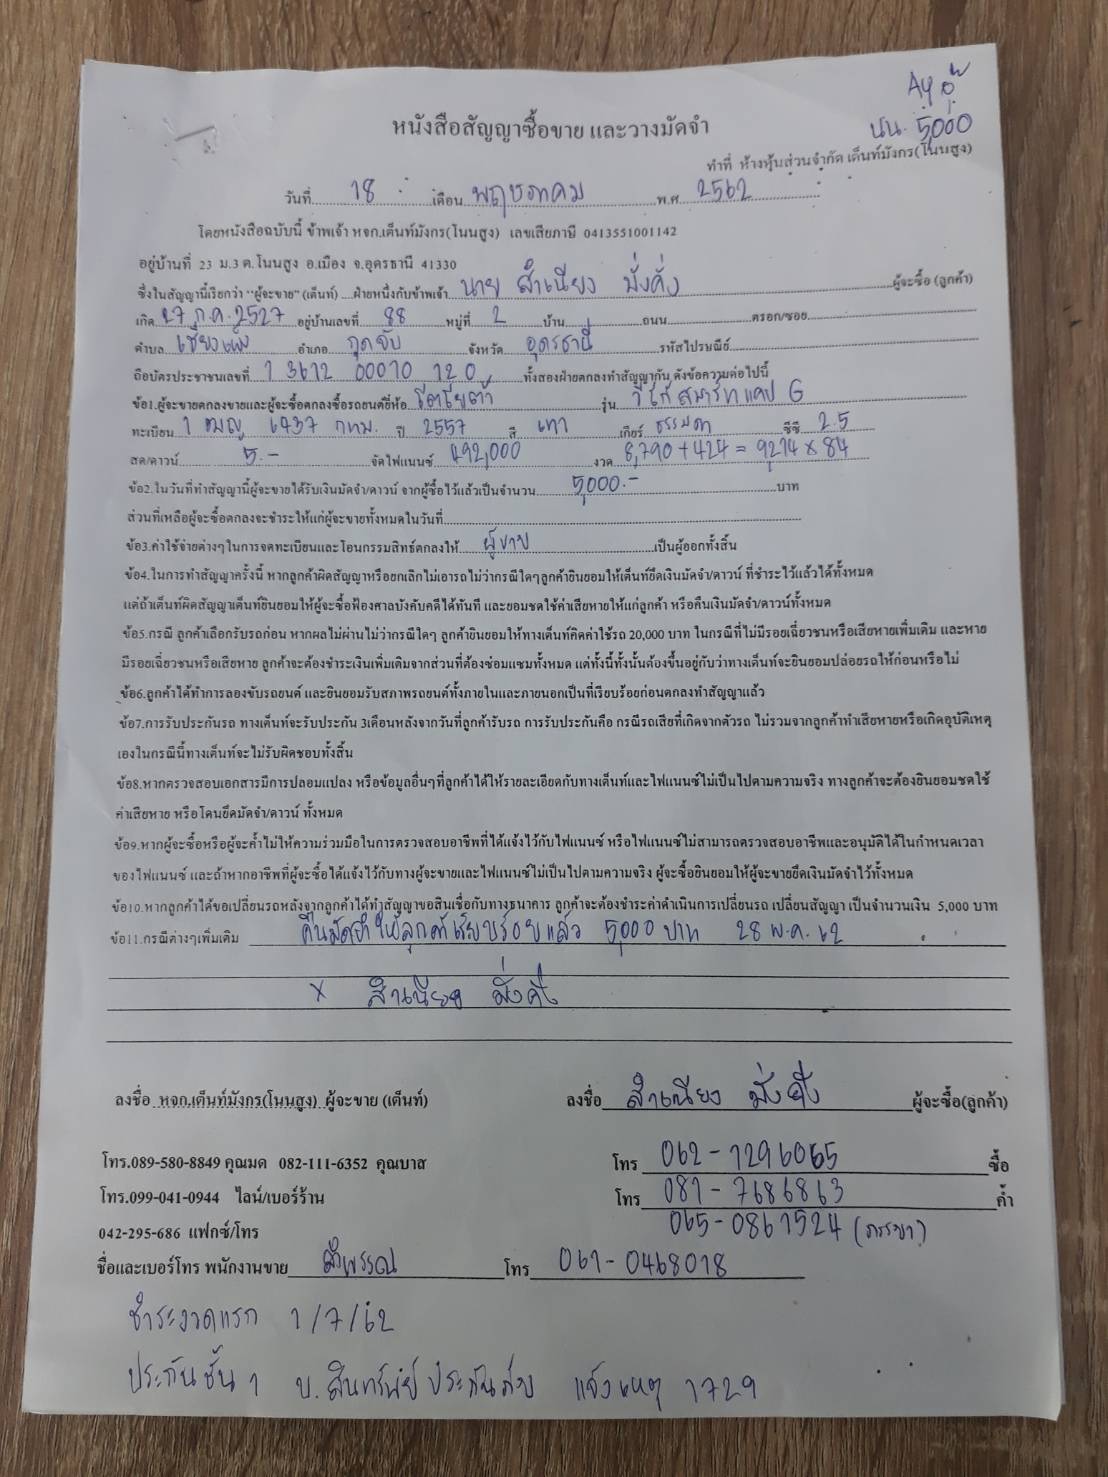 Ay อู๋
นน. 5000
หนังสือสัญญาซื้อขาย และวางมัดจำ
ทำที่ ห้างหุ้นส่วนจำกัด เต็นท์มังกร(โนนสูง)
วันที่ 18 เดือน พฤษภาคม พ.ศ 2562
โดยหนังสือฉบับนี้ ข้าพเจ้า หจก.เต็นท์มังกร(โนนสูง) เลขเสียภาษี 0413551001142
อยู่บ้านที่ 23 ม.3 ต.โนนสูง อ.เมือง จ.อุดรธานี 41330
ซึ่งในสัญญานี้เรียกว่า "ผู้จะขาย" (เต็นท์) ฝ่ายหนึ่งกับข้าพเจ้า นาย สำเนียง มั่งคั่ง ผู้จะซื้อ (ลูกค้า)
เกิด 27 ก.ค. 2527 อยู่บ้านเลขที่ 98 หมู่ที่ 2 บ้าน ถนน ตรอก/ซอย
ตำบล เชียงเพ็ง อำเภอ กุดจับ จังหวัด อุดรธานี รหัสไปรษณีย์
ถือบัตรประชาชนเลขที่ 1 3612 00010 12 0 ทั้งสองฝ่ายตกลงทำสัญญากัน ดังข้อความต่อไปนี้
ข้อ1.ผู้จะขายตกลงขายและผู้จะซื้อตกลงซื้อรถยนต์ยี่ห้อ โตโยต้า รุ่น วีโก้ สมาร์ทแคป G
ทะเบียน 1 ฒญ 6937 กทม. ปี 2557 สี เทา เกียร์ ธรรมดา ซีซี 2.5
สด/ดาวน์ 5.- จัดไฟแนนซ์ 492,000 งวด 8,790 + 424 = 9,214 x 84
ข้อ2.ในวันที่ทำสัญญานี้ผู้จะขายได้รับเงินมัดจำ/ดาวน์ จากผู้ซื้อไว้แล้วเป็นจำนวน 5,000.- บาท
ส่วนที่เหลือผู้จะซื้อตกลงจะชำระให้แก่ผู้จะขายทั้งหมดในวันที่
ข้อ3.ค่าใช้จ่ายต่างๆในการจดทะเบียนและโอนกรรมสิทธ์ตกลงให้ ผู้ขาย เป็นผู้ออกทั้งสิ้น
ข้อ4.ในการทำสัญญาครั้งนี้ หากลูกค้าผิดสัญญาหรือยกเลิกไม่เอารถ ไม่ว่ากรณีใดๆลูกค้ายินยอมให้เต็นท์ยึดเงินมัดจำ/ดาวน์ ที่ชำระไว้แล้วได้ทั้งหมด
แต่ถ้าเต็นท์ผิดสัญญาเต็นท์ยินยอมให้ผู้จะซื้อฟ้องศาลบังคับคดีได้ทันที และยอมชดใช้ค่าเสียหายให้แก่ลูกค้า หรือคืนเงินมัดจำ/ดาวน์ทั้งหมด
ข้อ5.กรณี ลูกค้าเลือกรับรถก่อน หากผลไม่ผ่านไม่ว่ากรณีใดๆ ลูกค้ายินยอมให้ทางเต็นท์คิดค่าใช้รถ 20,000 บาท ในกรณีที่ไม่มีรอยเฉี่ยวชนหรือเสียหายเพิ่มเติม และหาย
มีรอยเฉี่ยวชนหรือเสียหาย ลูกค้าจะต้องชำระเงินเพิ่มเติมจากส่วนที่ต้องซ่อมแซมทั้งหมด แต่ทั้งนี้ทั้งนั้นต้องขึ้นอยู่กับว่าทางเต็นท์จะยินยอมปล่อยรถให้ก่อนหรือไม่
ข้อ6.ลูกค้าได้ทำการลองขับรถยนต์ และยินยอมรับสภาพรถยนต์ทั้งภายในและภายนอกเป็นที่เรียบร้อยก่อนตกลงทำสัญญาแล้ว
ข้อ7.การรับประกันรถ ทางเต็นท์จะรับประกัน 3เดือนหลังจากวันที่ลูกค้ารับรถ การรับประกันคือ กรณีรถเสียที่เกิดจากตัวรถ ไม่รวมจากลูกค้าทำเสียหายหรือเกิดอุบัติเหตุ
เองในกรณีนี้ทางเต็นท์จะไม่รับผิดชอบทั้งสิ้น
ข้อ8.หากตรวจสอบเอกสารมีการปลอมแปลง หรือข้อมูลอื่นๆที่ลูกค้าได้ให้รายละเอียดกับทางเต็นท์และไฟแนนซ์ไม่เป็นไปตามความจริง ทางลูกค้าจะต้องยินยอมชดใช้
ค่าเสียหาย หรือโดนยึดมัดจำ/ดาวน์ ทั้งหมด
ข้อ9.หากผู้จะซื้อหรือผู้จะค้ำไม่ให้ความร่วมมือในการตรวจสอบอาชีพที่ได้แจ้งไว้กับไฟแนนซ์ หรือไฟแนนซ์ไม่สามารถตรวจสอบอาชีพและอนุมัติได้ในกำหนดเวลา
ของไฟแนนซ์ และถ้าหากอาชีพที่ผู้จะซื้อได้แจ้งไว้กับทางผู้จะขายและไฟแนนซ์ไม่เป็นไปตามความจริง ผู้จะซื้อยินยอมให้ผู้จะขายยึดเงินมัดจำไว้ทั้งหมด
ข้อ10.หากลูกค้าได้ขอเปลี่ยนรถหลังจากลูกค้าได้ทำสัญญาขอสินเชื่อกับทางธนาคาร ลูกค้าจะต้องชำระค่าดำเนินการเปลี่ยนรถ เปลี่ยนสัญญา เป็นจำนวนเงิน 5,000 บาท
ข้อ11.กรณีต่างๆเพิ่มเติม คืนมัดจำให้ลูกค้าเรียบร้อยแล้ว 5,000 บาท 28 พ.ค. 62
x สำเนียง มั่งคั่ง
ลงชื่อ หจก.เต็นท์มังกร(โนนสูง) ผู้จะขาย (เต็นท์) ลงชื่อ สำเนียง มั่งคั่ง ผู้จะซื้อ(ลูกค้า)
โทร.089-580-8849 คุณมด 082-111-6352 คุณบาส โทร 062-1296065 ซื้อ
โทร.099-041-0944 ไลน์/เบอร์ร้าน โทร 081-7686863 ค้ำ
042-295-686 แฟกซ์/โทร 065-0861524 (ภรรยา)
ชื่อและเบอร์โทร พนักงานขาย ลำพรรณ โทร 061-0468018
ชำระงวดแรก 1/7/62
ประกันชั้น 1 บ. สินทรัพย์ประกันภัย แจ้งเหตุ 1729